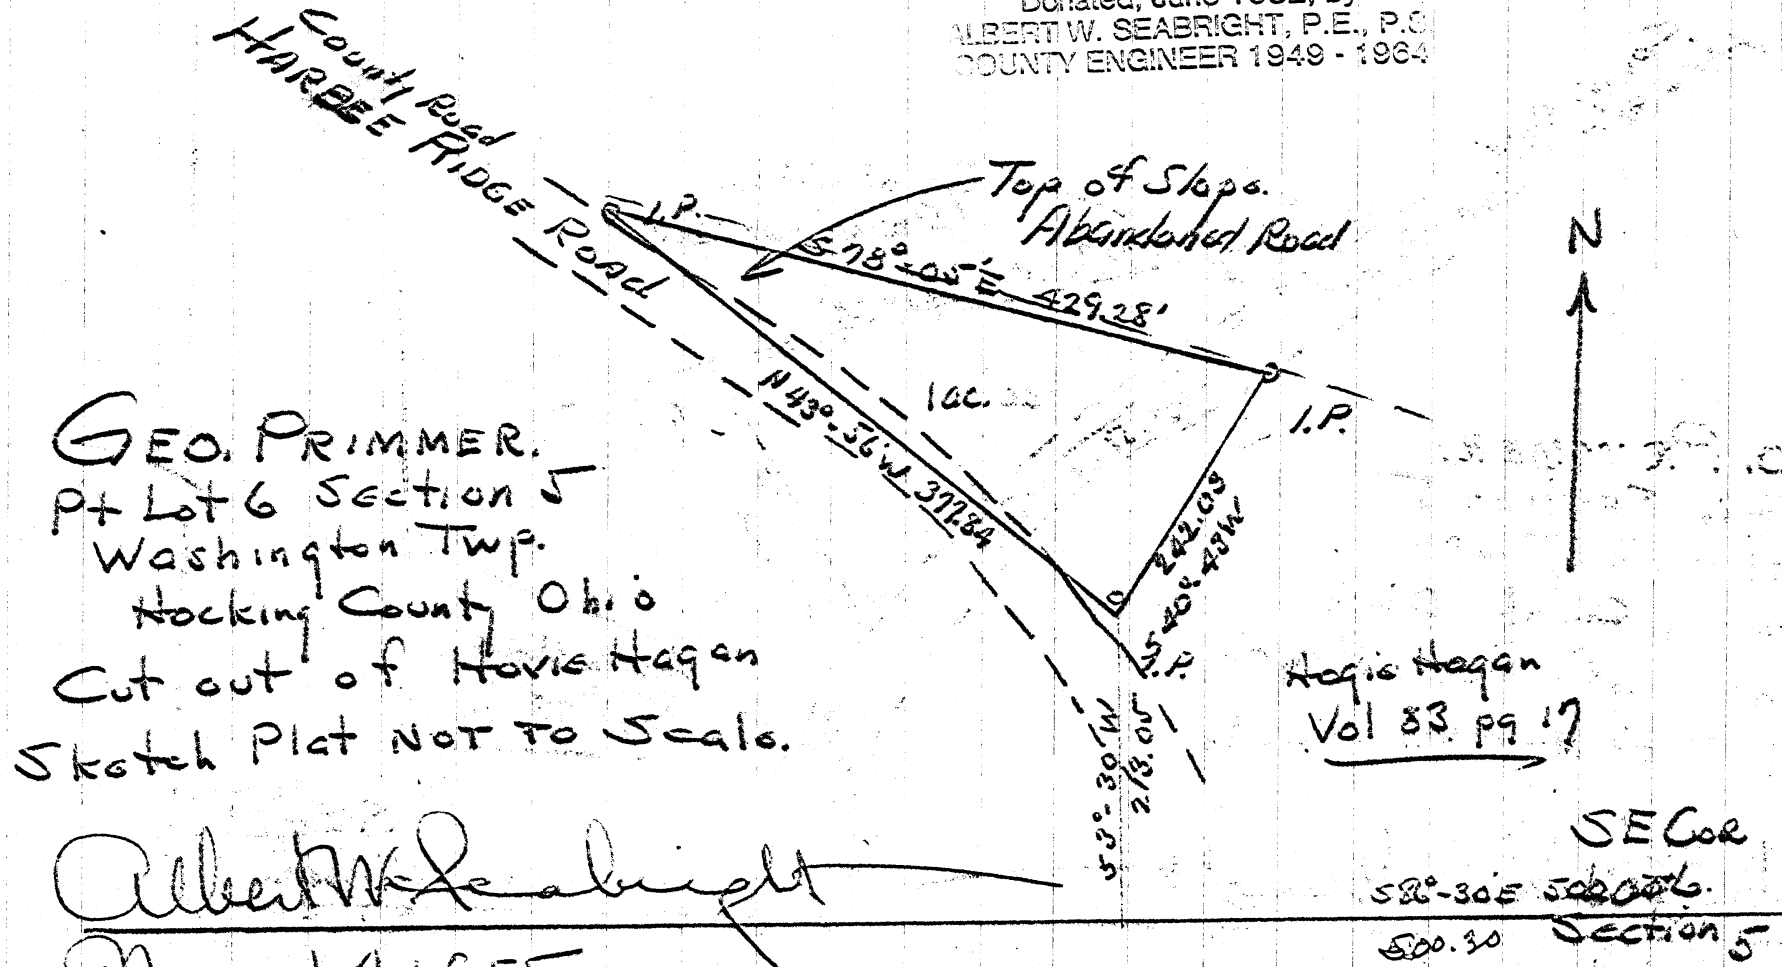 Donated, June 1982, by
ALBERT W. SEABRIGHT, P.E., P.S.
COUNTY ENGINEER 1949 - 1964
County Road
HARBEE RIDGE ROAD
I.P.
Top of Slope.
Abandoned Road
S 78°-05'E 429.28'
N
1 ac.
I.P.
N 43°-56'W 377.84
242.03
S 40° 43W
I.P.
GEO. PRIMMER.
Pt Lot 6 Section 5
Washington Twp.
Hocking County Ohio
Cut out of Hovie Hagan
Sketch Plat NOT TO Scale.
Hogie Hagan
Vol 83 pg 17
S 3°-30'W
213.05
SE Cor
S86°-30'E
500.30
Section 5
Albert W Seabright